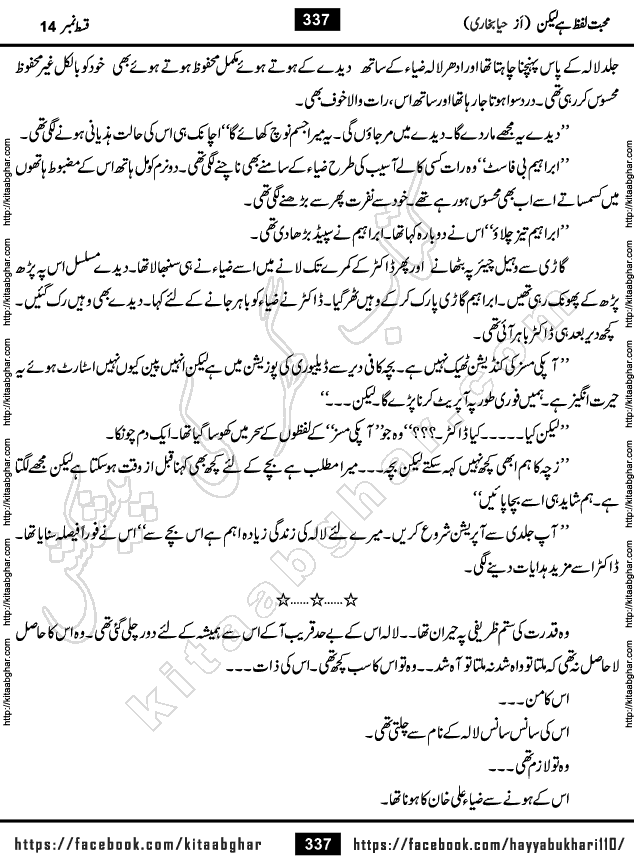 محبت لفظ ہے لیکن (از حیا بخاری)
337
قسط نمبر 14
جلد لالہ کے پاس پہنچنا چاہتا تھا اور ادھر لالہ ضیاء کے ساتھ دیدے کے ہوتے ہوئے مکمل محفوظ ہوتے ہوئے بھی خود کو بالکل غیر محفوظ
محسوس کر رہی تھی۔ درد سوا ہوتا جا رہا تھا اور ساتھ اس، رات والا خوف بھی۔
’’دیدے یہ مجھے مار دے گا۔ دیدے میں مر جاؤں گی۔ یہ میرا جسم نوچ کھائے گا‘‘ اچانک ہی اس کی حالت ہذیانی ہونے لگی تھی۔
’’ابراہیم بی فاسٹ‘‘ وہ رات کسی کالے آسیب کی طرح ضیاء کے سامنے بھی ناچنے لگی تھی۔ دو نرم کومل ہاتھ اس کے مضبوط ہاتھوں
میں کسمساتے اسے اب بھی محسوس ہو رہے تھے۔ خود سے نفرت پھر سے بڑھنے لگی تھی۔
’’ابراہیم تیز چلاؤ‘‘ اس نے دوبارہ کہا تھا۔ ابراہیم نے سپیڈ بڑھا دی تھی۔
گاڑی سے وہیل چیئر پہ بٹھانے اور پھر ڈاکٹر کے کمرے تک لانے میں اسے ضیاء نے ہی سنبھالا تھا۔ دیدے مسلسل اس پہ پڑھ
پڑھ کے پھونک رہی تھیں۔ ابراہیم گاڑی پارک کر کے وہیں ٹھہر گیا۔ ڈاکٹر نے ضیاء کو باہر جانے کے لئے کہا۔ دیدے بھی وہیں رک گئیں۔
کچھ دیر بعد ہی ڈاکٹر باہر آئی تھی۔
’’آپکی مسز کی کنڈیشن ٹھیک نہیں ہے۔ بچہ کافی دیر سے ڈیلیوری کی پوزیشن میں ہے لیکن انہیں پین کیوں نہیں اسٹارٹ ہوئے یہ
حیرت انگیز ہے۔ ہمیں فوری طور پہ آپریٹ کرنا پڑے گا۔ لیکن۔۔۔‘‘
’’لیکن کیا۔۔۔۔۔ کیا ڈاکٹر۔؟؟؟‘‘ وہ جو ’’آپکی مسز‘‘ کے لفظوں کے سحر میں کھو سا گیا تھا۔ ایک دم چونکا۔
’’زچہ کا ہم ابھی کچھ نہیں کہہ سکتے لیکن بچہ۔۔۔ میرا مطلب ہے بچے کے لئے کچھ بھی کہنا قبل از وقت ہو سکتا ہے لیکن مجھے لگتا
ہے۔ ہم شاید ہی اسے بچا پائیں‘‘
’’آپ جلدی سے آپریشن شروع کریں۔ میرے لئے لالہ کی زندگی زیادہ اہم ہے اس بچے سے‘‘ اس نے فوراً فیصلہ سنایا تھا۔
ڈاکٹر اسے مزید ہدایات دینے لگی۔
☆......☆......☆
وہ قدرت کی ستم ظریفی پہ حیران تھا۔۔ لالہ اس کے بے حد قریب آ کے اس سے ہمیشہ کے لئے دور چلی گئی تھی۔ وہ اس کا حاصل
لا حاصل نہ تھی کہ ملتا تو واہ شد نہ ملتا تو آہ شد۔۔ وہ تو اس کا سب کچھ تھی۔ اس کی ذات۔۔۔
اس کا من۔۔۔
اس کی سانس سانس لالہ کے نام سے چلتی تھی۔
وہ تو لازم تھی۔۔۔
اس کے ہونے سے ضیاء علی خان کا ہونا تھا۔
کتاب گھر کی پیشکش
kitaabghar.com
http://kitaabghar.com http://kitaabghar.com http://kitaabghar.com http://kitaabghar.com http://kitaabghar.com http://kitaabghar.com
http://kitaabghar.com http://kitaabghar.com http://kitaabghar.com http://kitaabghar.com http://kitaabghar.com http://kitaabghar.com
https://facebook.com/kitaabghar
337
https://facebook.com/hayyabukhari110/